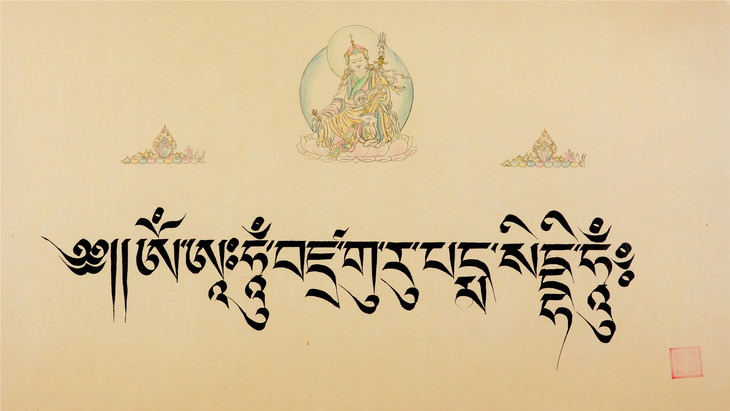 ༄༅།།ཨོཾ་ཨཱཿཧཱུྃ་བཛྲ་གུ་རུ་པདྨ་སིདྡྷི་ཧཱུྃ༔